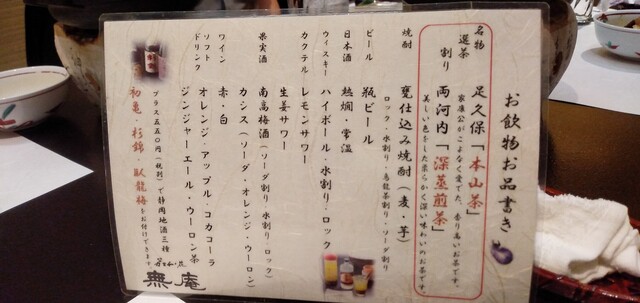 お飲物お品書き
名物
選茶
割り
足久保「本山茶」
家康公がこよなく愛でた、香り高いお茶です。
両河内「深蒸煎茶」
美しい色をした柔らかく深い味わいのお茶です。
焼酎
甕仕込み焼酎(麦・芋)
ロック・水割り・烏龍茶割り・ソーダ割り
ビール
瓶ビール
日本酒
熱燗・常温
ウィスキー
ハイボール・水割り・ロック
カクテル
レモンサワー
生姜サワー
果実酒
南高梅酒(ソーダ割り・水割り・ロック)
カシス(ソーダ・オレンジ・ウーロン)
ワイン
赤・白
ソフト
ドリンク
オレンジ・アップル・コカコーラ
ジンジャーエール・ウーロン茶
プラス五五〇円(税別)で静岡地酒三種
初亀・杉錦・臥龍梅をお付けできます。
無庵